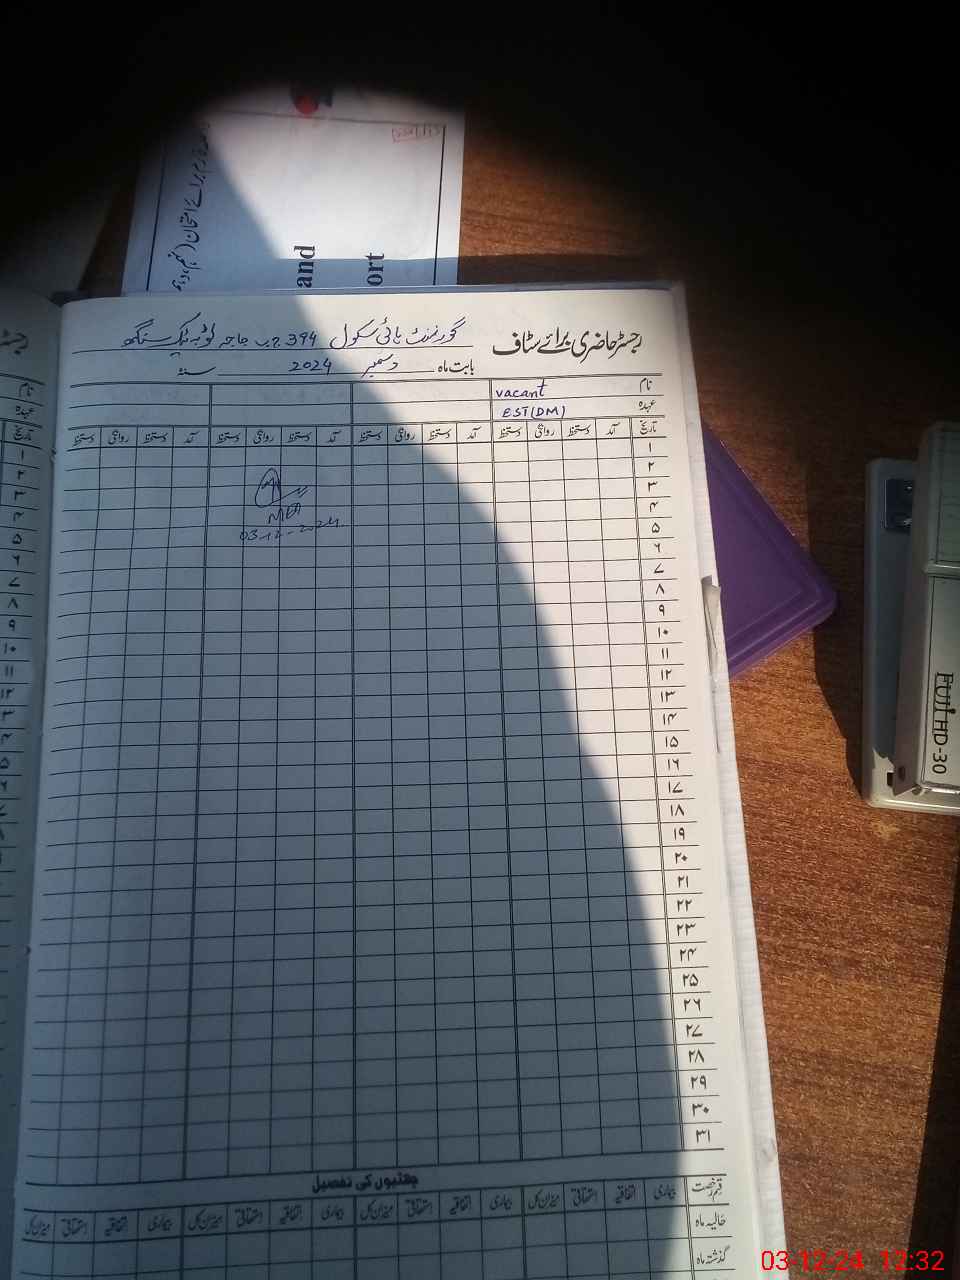 and
ort
رجسٹر حاضری برائے سٹاف گورنمنٹ ہائی سکول 394 ج ب جاجہ ٹوبہ ٹیک سنگھ
بابت ماہ دسمبر 2024 سنہ
نام vacant
عہدہ EST(DM)
تاریخ آمد دستخط روانگی دستخط آمد دستخط روانگی دستخط آمد دستخط روانگی دستخط آمد دستخط روانگی دستخط
۱
۲
۳
۴
۵
۶
۷
۸
۹
۱۰
۱۱
۱۲
۱۳
۱۴
۱۵
۱۶
۱۷
۱۸
۱۹
۲۰
۲۱
۲۲
۲۳
۲۴
۲۵
۲۶
۲۷
۲۸
۲۹
۳۰
۳۱
03-12-2024
چھٹیوں کی تفصیل
قسم رخصت بیماری اتفاقیہ استحقاقی میزان کل بیماری اتفاقیہ استحقاقی میزان کل بیماری اتفاقیہ استحقاقی میزان کل بیماری اتفاقیہ استحقاقی میزان کل
حالیہ ماہ
گذشتہ ماہ
نام
عہدہ
تاریخ
۱
۲
۳
۴
۵
۶
۷
۸
۹
۱۰
۱۱
۱۲
FUJI HD-30
03-12-24 12:32